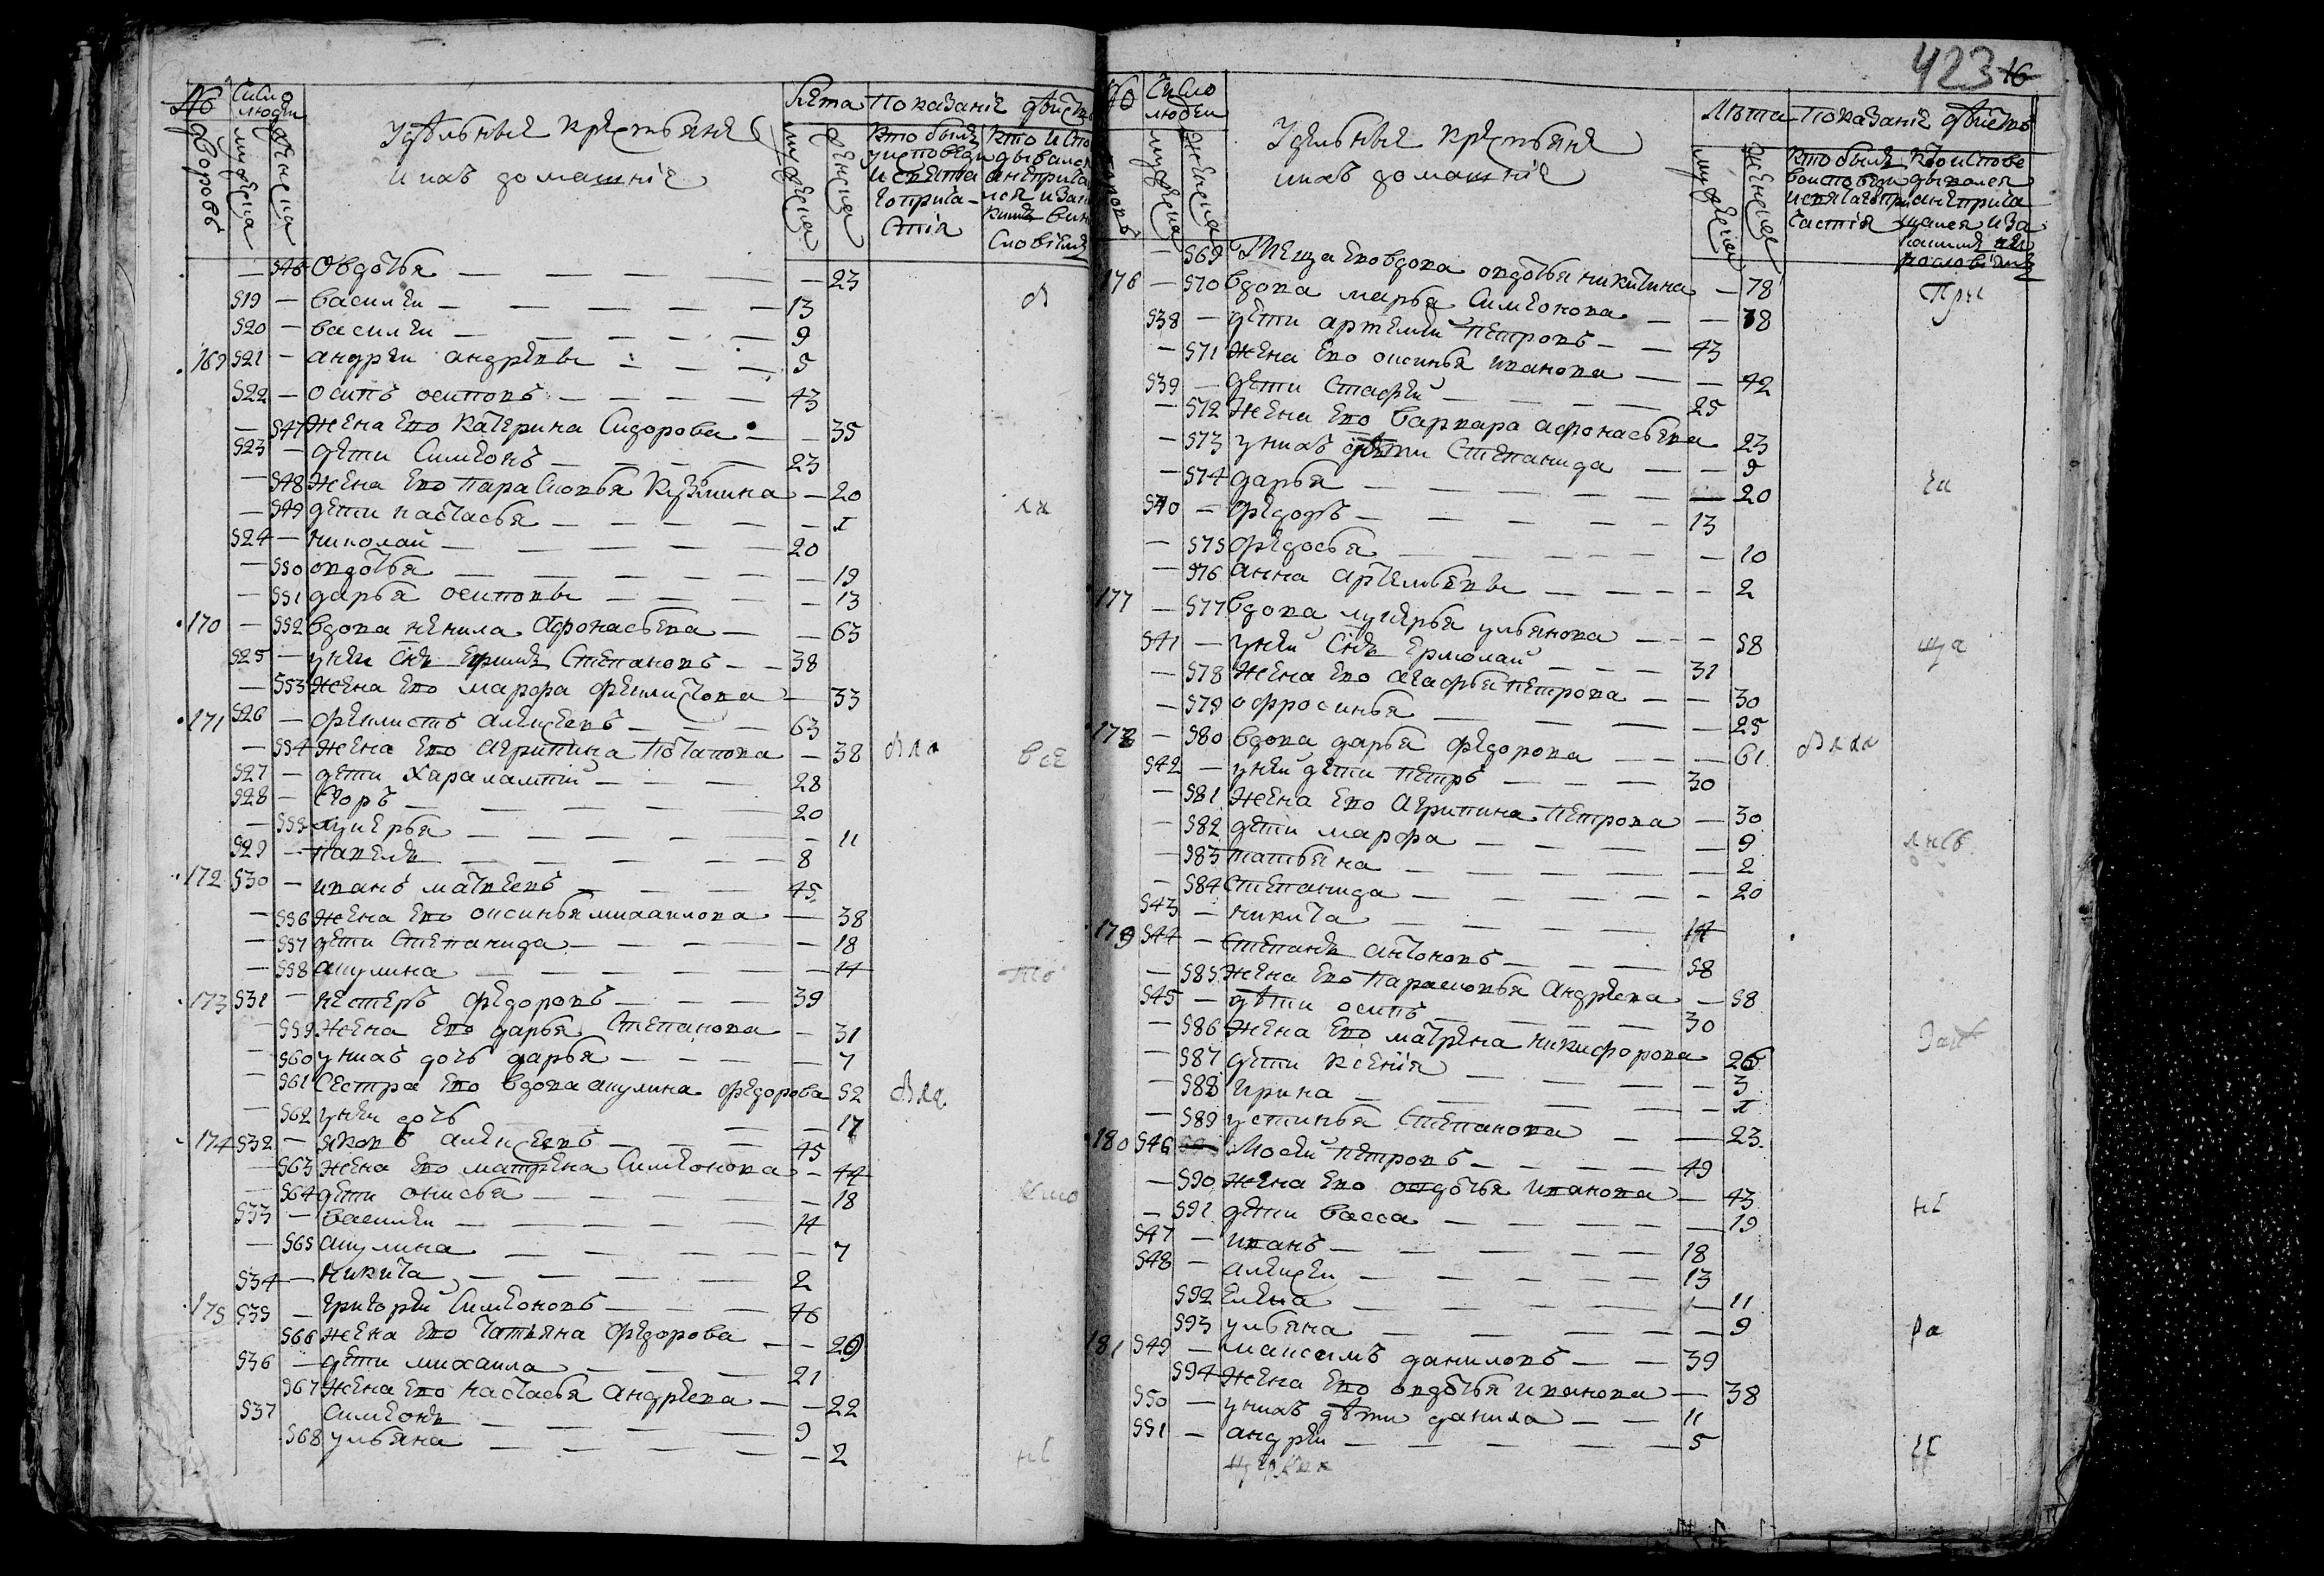 423 16
№ дворовъ
Число людеи
мужеска
женска
Удѣльныя крестьяня
и ихъ домашнія
Лета
мужеска
женска
Показаніе дѣйств
Кто былъ
у исповеди
и святаго
прича-
стія
— 546 Овдотья — 23
519 — Василеи — 13
520 — Василеи — 9
169 521 — андреи андреевы — 5
522 — осипъ осиповъ — 43
— 547 жена ево катерина Сидорова — 35
523 — дети Симеонъ — 23
— 548 жена ево парасковья Кузмина — 20
— 549 дети настасья — 1
524 — николаи — 20
— 550 овдотья — 19
— 551 дарья осиповы — 13
170 — 552 вдова ненила Афонасьева — 63
525 — у неи снъ Ефимъ Степановъ — 38
— 553 жена ево марфа филистова — 33
171 526 — филистъ алексеевъ — 63
— 554 жена ево агрипина Потапова — 38
527 — дети Харалампій — 28
528 — Егоръ — 20
— 555 лукерья — 11
529 — павелъ — 8
172 530 — иванъ матвеевъ — 45
— 556 жена ево оксинья михаилова — 38
— 557 дети Степанида — 18
— 558 акулина — 14
173 531 — нестеръ федоровъ — 39
— 559 жена ево дарья Степанова — 31
— 560 у нихъ дочь дарья — 7
— 561 Сестра ево вдова акулина федорова 52
— 562 у неи дочь — 17
174 532 — яковъ алексеевъ — 45
— 563 жена ево матрена Симеонова — 44
— 564 дети онисья — 18
533 — василеи — 14
— 565 акулина — 7
534 — никита — 2
175 535 — григореи Симеоновъ — 46
566 жена ево татьяна федорова — 29
536 — дети михаила — 21
567 жена ево настасья андреева — 22
537 Симеонъ — 9
568 ульяна — 2
№
Число людеи
мужеска
женска
Удельныя крестьяня
и ихъ домашнія
Лѣта
мужеска
женска
Показаніе дѣйств
Кто былъ
— 569 Теща ево вдова овдотья никитина — 78
176 — 570 вдова марья Симеонова — 78
538 — дети артемеи петровъ — 43
— 571 жена ево оксинья иванова — 42
539 — дети Стафеи — 25
— 572 жена ево варвара афонасьева 23
— 573 у нихъ дѣти Степанида — 9
— 574 дарья — 20
540 — федоръ — 13
— 575 федосья — 10
— 576 анна артемьевы — 2
177 — 577 вдова лукерья ульянова — 58
541 — у неи снъ Ермолаи — 31
— 578 жена ево агафья петрова — 30
— 579 офросинья — 25
178 — 580 вдова дарья федорова — 61
542 — у неи дети петръ — 30
— 581 жена ево агрипина петрова — 30
— 582 дети марфа — 9
— 583 татьяна — 2
— 584 степанида — 20
543 — никита — 14
179 544 — Степанъ антоновъ — 58
— 585 жена ево парасковья андреева — 58
545 — дѣти осипъ — 30
— 586 жена ево матрена никифорова 26
— 587 дети ксенія — 3
— 588 ирина — 1
— 589 устинья Степанова — 23
180 546 Мосеи петровъ — 49
— 590 жена ево овдотья иванова — 43
— 591 дети васса — 19
547 — иванъ — 18
548 — алексеи — 13
592 Елена — 11
593 ульяна — 9
181 549 — максимъ даниловъ — 39
594 жена ево овдотья иванова — 38
550 — у нихъ дѣти данила — 11
551 — андреи — 5